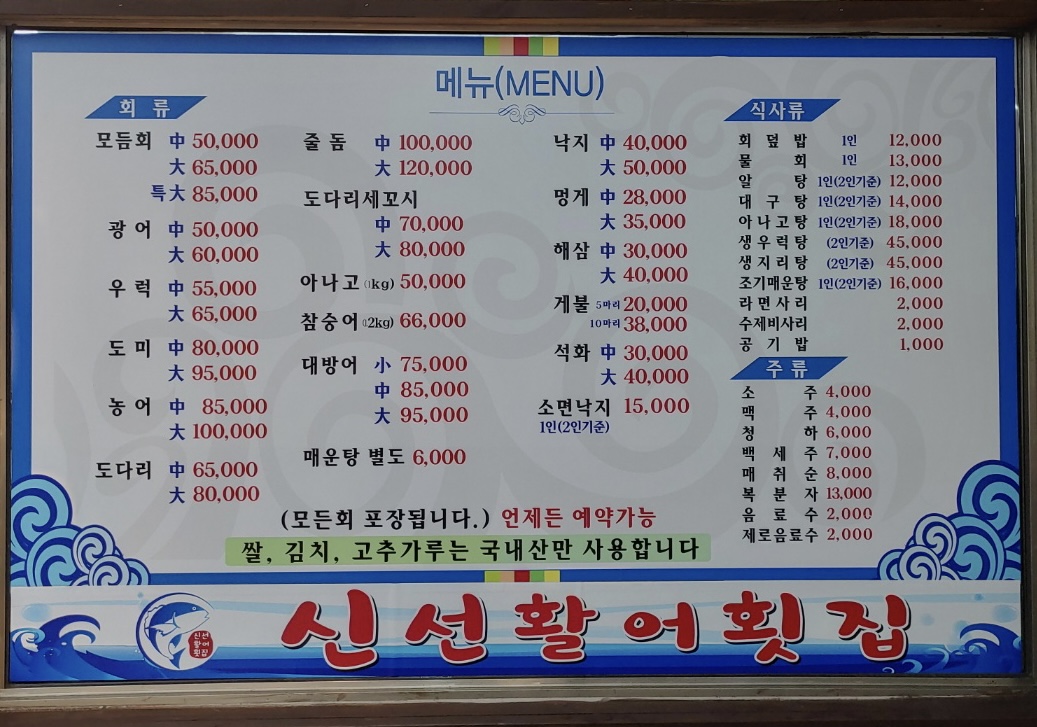 메뉴(MENU)
회 류
모듬회 中 50,000
大 65,000
특大 85,000
광 어 中 50,000
大 60,000
우 럭 中 55,000
大 65,000
도 미 中 80,000
大 95,000
농 어 中 85,000
大 100,000
도다리 中 65,000
大 80,000
줄 돔 中 100,000
大 120,000
도다리세꼬시
中 70,000
大 80,000
아나고 (1kg) 50,000
참숭어 (1.2kg) 66,000
대방어 小 75,000
中 85,000
大 95,000
매운탕 별도 6,000
낙지 中 40,000
大 50,000
멍게 中 28,000
大 35,000
해삼 中 30,000
大 40,000
게불 5마리 20,000
10마리 38,000
석화 中 30,000
大 40,000
소면낙지 15,000
1인(2인기준)
식사류
회 덮 밥 1인 12,000
물 회 1인 13,000
알 탕 1인(2인기준) 12,000
대 구 탕 1인(2인기준) 14,000
아나고탕 1인(2인기준) 18,000
생우럭탕 (2인기준) 45,000
생지리탕 (2인기준) 45,000
조기매운탕 1인(2인기준) 16,000
라면사리 2,000
수제비사리 2,000
공 기 밥 1,000
주 류
소 주 4,000
맥 주 4,000
청 하 6,000
백 세 주 7,000
매 취 순 8,000
복 분 자 13,000
음 료 수 2,000
제로음료수 2,000
(모든회 포장됩니다.) 언제든 예약가능
쌀, 김치, 고추가루는 국내산만 사용합니다
신선
활어
횟집
신선활어횟집